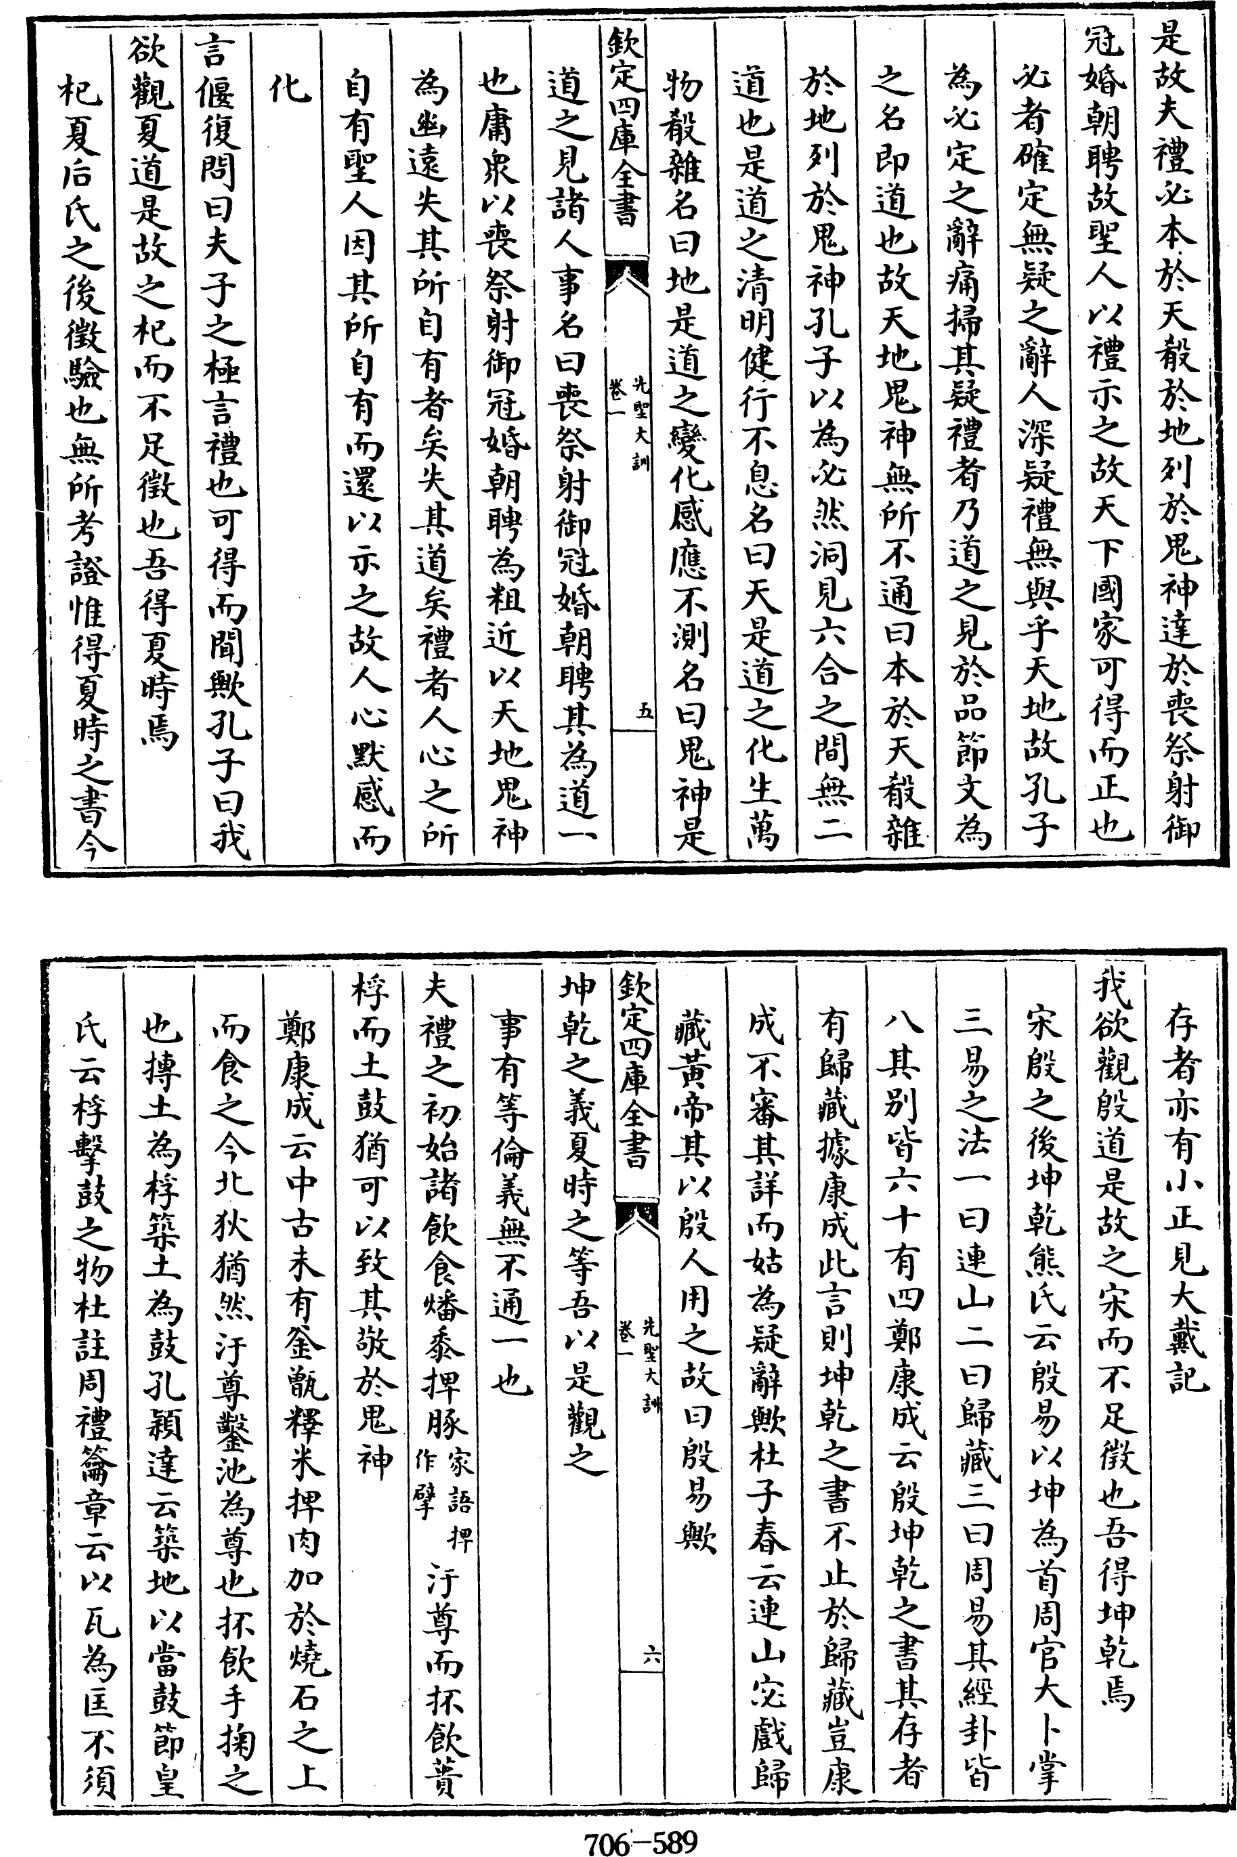 是故夫禮必本於天殽於地列於鬼神達於喪祭射御
冠婚朝聘故聖人以禮示之故天下國家可得而正也
必者確定無疑之辭人深疑禮無與乎天地故孔子
為必定之辭痛掃其疑禮者乃道之見於品節文為
之名即道也故天地鬼神無所不通曰本於天殽雜
於地列於鬼神孔子以為必然洞見六合之間無二
道也是道之清明健行不息名曰天是道之化生萬
物殽雜名曰地是道之變化感應不測名曰鬼神是
欽定四庫全書
先聖大訓
卷一
五
道之見諸人事名曰喪祭射御冠婚朝聘其為道一
也庸衆以喪祭射御冠婚朝聘為粗近以天地鬼神
為幽遠失其所自有者矣失其道矣禮者人心之所
自有聖人因其所自有而還以示之故人心默感而
化
言偃復問曰夫子之極言禮也可得而聞歟孔子曰我
欲觀夏道是故之杞而不足徵也吾得夏時焉
杞夏后氏之後徵驗也無所考證惟得夏時之書今
存者亦有小正見大戴記
我欲觀殷道是故之宋而不足徵也吾得坤乾焉
宋殷之後坤乾熊氏云殷易以坤為首周官大卜掌
三易之法一曰連山二曰歸藏三曰周易其經卦皆
八其别皆六十有四鄭康成云殷坤乾之書其存者
有歸藏據康成此言則坤乾之書不止於歸藏豈康
成不審其詳而姑為疑辭歟杜子春云連山宓戲歸
藏黄帝其以殷人用之故曰殷易歟
欽定四庫全書
先聖大訓
卷一
六
坤乾之義夏時之等吾以是觀之
事有等倫義無不通一也
夫禮之初始諸飲食燔黍捭豚家語捭作擘汙尊而抔飲蕢
桴而土鼓猶可以致其敬於鬼神
鄭康成云中古未有釜甑釋米捭肉加於燒石之上
而食之今北狄猶然汙尊鑿池為尊也抔飲手掬之
也摶土為桴築土為鼓孔穎達云築地以當鼓節皇
氏云桴擊鼓之物杜註周禮籥章云以瓦為匡不須
706-589